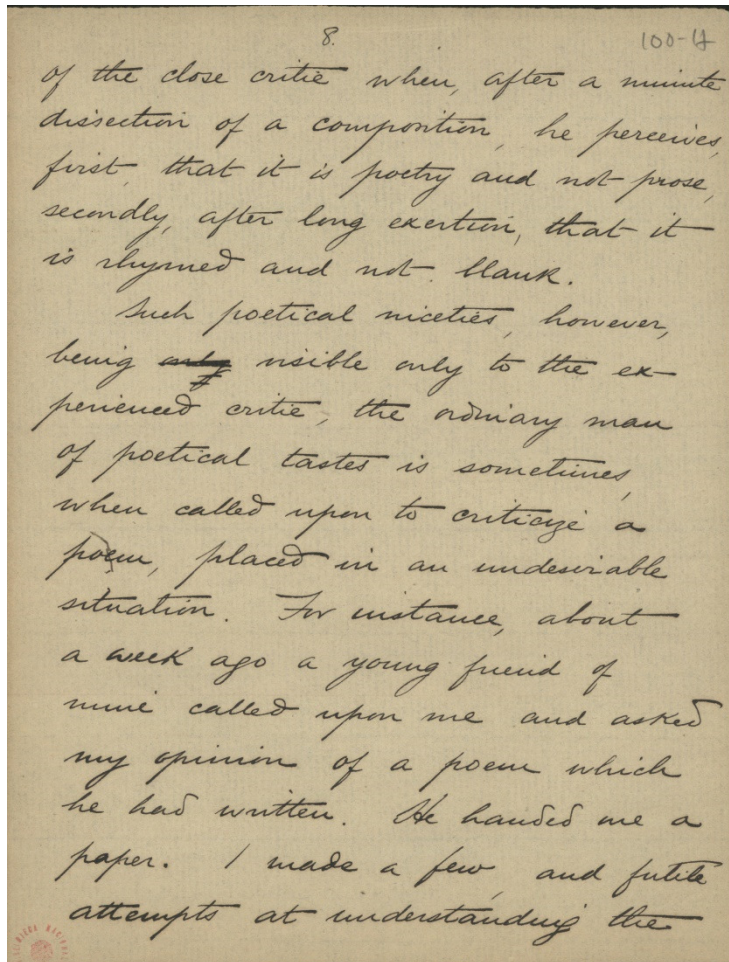 8.
100-4
of the close critic when, after a minute
dissection of a composition, he perceives,
first, that it is poetry and not prose,
secondly, after long exertion, that it
is rhymed and not blank.
Such poetical niceties, however,
being only visible only to the ex-
perienced critic, the ordinary man
of poetical tastes is sometimes,
when called upon to criticize a
poem, placed in an undesirable
situation. For instance, about
a week ago a young friend of
mine called upon me and asked
my opinion of a poem which
he had written. He handed me a
paper. I made a few, and futile
attempts at understanding the